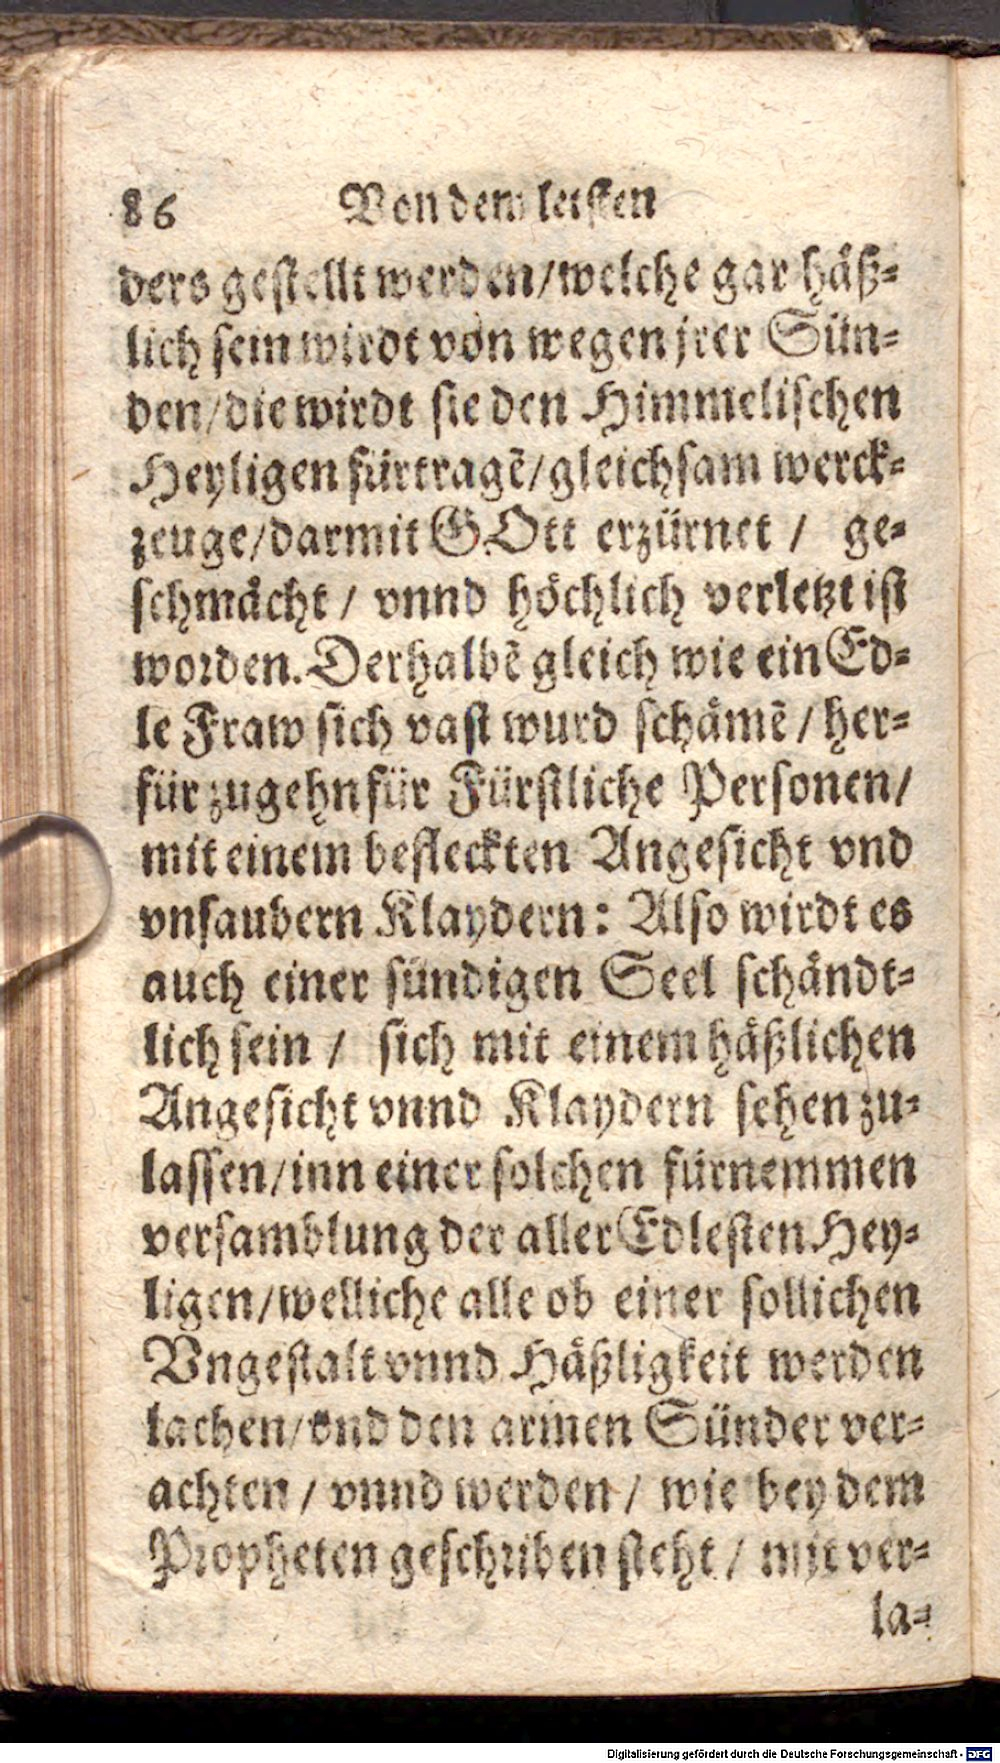 86 Von dem letsten
ders gestellt werden/welche gar häß-
lich sein wirdt von wegen jrer Sün-
den/die wirdt sie den Himmelischen
Heyligen fürtragẽ/gleichsam werck-
zeuge/darmit GOtt erzürnet / ge-
schmächt / vnnd höchlich verletzt ist
worden. Derhalbẽ gleich wie ein Ed-
le Fraw sich vast wurd schämẽ / her-
für zugehn für Fürstliche Personen/
mit einem befleckten Angesicht vnd
vnsaubern Klaydern: Also wirdt es
auch einer sündigen Seel schändt-
lich sein / sich mit einem häßlichen
Angesicht vnnd Klaydern sehen zu-
lassen/inn einer solchen fürnemmen
versamblung der aller Edlesten Hey-
ligen/welliche alle ob einer sollichen
Vngestalt vnnd Häßligkeit werden
lachen/vnd den armen Sünder ver-
achten / vnnd werden / wie bey dem
Propheten geschriben steht / mit ver-
la-
Digitalisierung gefördert durch die Deutsche Forschungsgemeinschaft - DFG